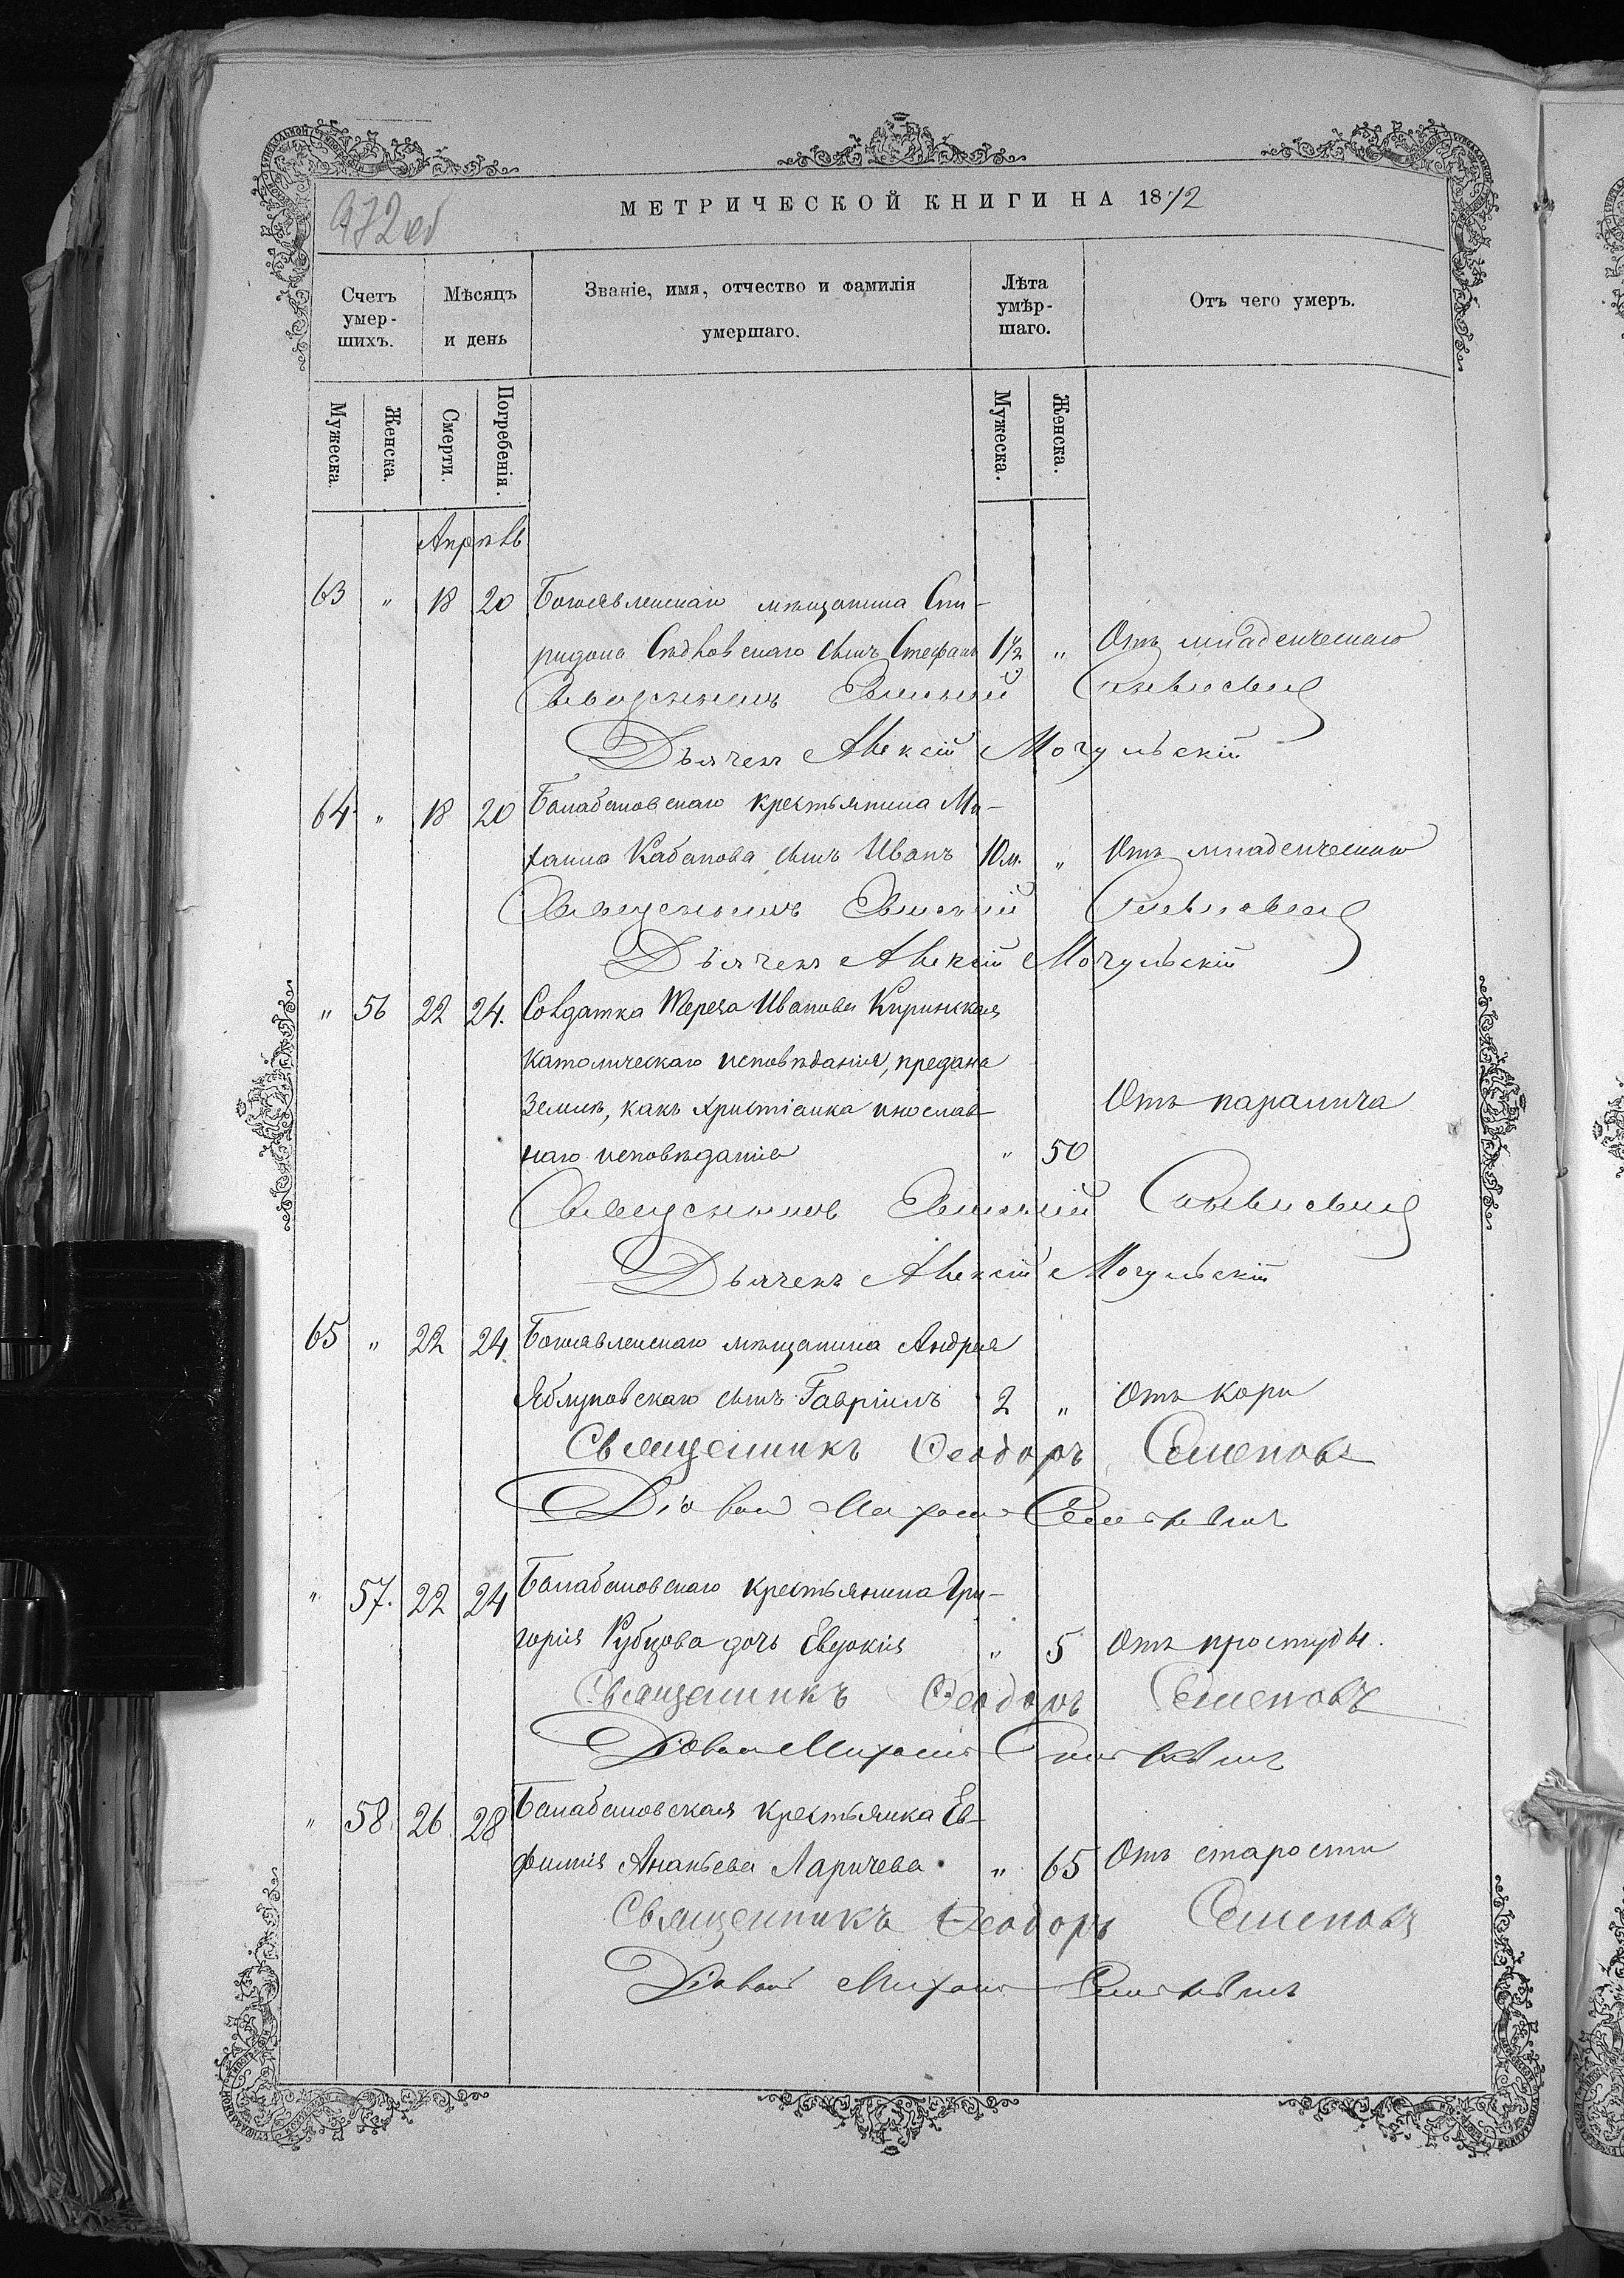 972 об
МЕТРИЧЕСКОЙ КНИГИ НА 1872
Счетъ умер-шихъ.
Мѣсяцъ и день
Званіе, имя, отчество и фамилія умершаго.
Лѣта умѣр-шаго.
Отъ чего умеръ.
Мужеска.
Женска.
Смерти.
Погребенія.
Мужеска.
Женска.
Апрѣль
63 " 18 20 Богоявленскаго мѣщанина Спи-
ридона Садковскаго сынъ Стефанъ 1½ " Отъ младенческаго
Священникъ Евгеній
Дьячекъ Алексій Могульскій
64. " 18 20 Балабановскаго крестьянина Ми-
хаила Кабанова сынъ Иванъ 10 м. " Отъ младенческаго
Священникъ Евгеній
Дьячекъ Алексій Могульскій
" 56 22 24. Солдатка Тереза Иванова Киринская
католическаго исповѣданія, предана
землѣ, какъ христіанка инослав-
наго исповѣданія " 50 Отъ паралича
Священникъ Евгеній
Дьячекъ Алексій Могульскій
65 " 22 24. Богоявленскаго мѣщанина Андрея
Яблуновскаго сынъ Гавріилъ 2 " Отъ кори
Священникъ Ѳеодоръ Семеновъ
Михаилъ
" 57. 22 24 Балабановскаго крестьянина Гри-
горія Рубцова дочь Евдокія " 5 Отъ простуды.
Священникъ Ѳеодоръ Семеновъ
Михаилъ
" 58. 26 28 Балабановская крестьянка Ев-
фимія Ананьева Ларичева " 65 Отъ старости
Священникъ Ѳеодоръ Семеновъ
Михаилъ